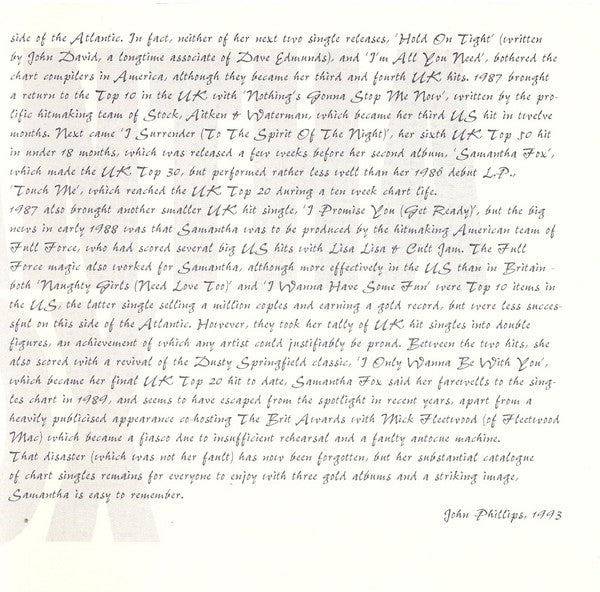 side of the Atlantic. In fact, neither of her next two single releases, 'Hold On Tight' (written
by John David, a longtime associate of Dave Edmunds), and 'I'm All You Need', bothered the
chart compilers in America, although they became her third and fourth UK hits. 1987 brought
a return to the Top 10 in the UK with 'Nothing's Gonna Stop Me Now', written by the pro-
lific hitmaking team of Stock, Aitken & Waterman, which became her third US hit in twelve
months. Next came 'I Surrender (To The Spirit Of The Night)', her sixth UK Top 50 hit
in under 18 months, which was released a few weeks before her second album, 'Samantha Fox',
which made the UK Top 30, but performed rather less well than her 1986 debut L.P.,
'Touch Me', which reached the UK Top 20 during a ten week chart life.
1987 also brought another smaller UK hit single, 'I Promise You (Get Ready)', but the big
news in early 1988 was that Samantha was to be produced by the hitmaking American team of
Full Force, who had scored several big US hits with Lisa Lisa & Cult Jam. The Full
Force magic also worked for Samantha, although more effectively in the US than in Britain -
both 'Naughty Girls (Need Love Too)' and 'I Wanna Have Some Fun' were Top 10 items in
the US, the latter single selling a million coples and earning a gold record, but were less succes-
sful on this side of the Atlantic. However, they took her tally of UK hit singles into double
figures, an achievement of which any artist could justifiably be proud. Between the two hits, she
also scored with a revival of the Dusty Springfield classic, 'I Only Wanna Be With You',
which became her final UK Top 20 hit to date, Samantha Fox said her farewells to the sing-
les chart in 1989, and seems to have escaped from the spotlight in recent years, apart from a
heavily publicised appearance co-hosting The Brit Awards with Mick Fleetwood (of Fleetwood
Mac) which became a fiasco due to insufficient rehearsal and a faulty autocue machine.
That disaster (which was not her fault) has now been forgotten, but her substantial catalogue
of chart singles remains for everyone to enjoy with three gold albums and a striking image,
Samantha is easy to remember.
John Phillips, 1993